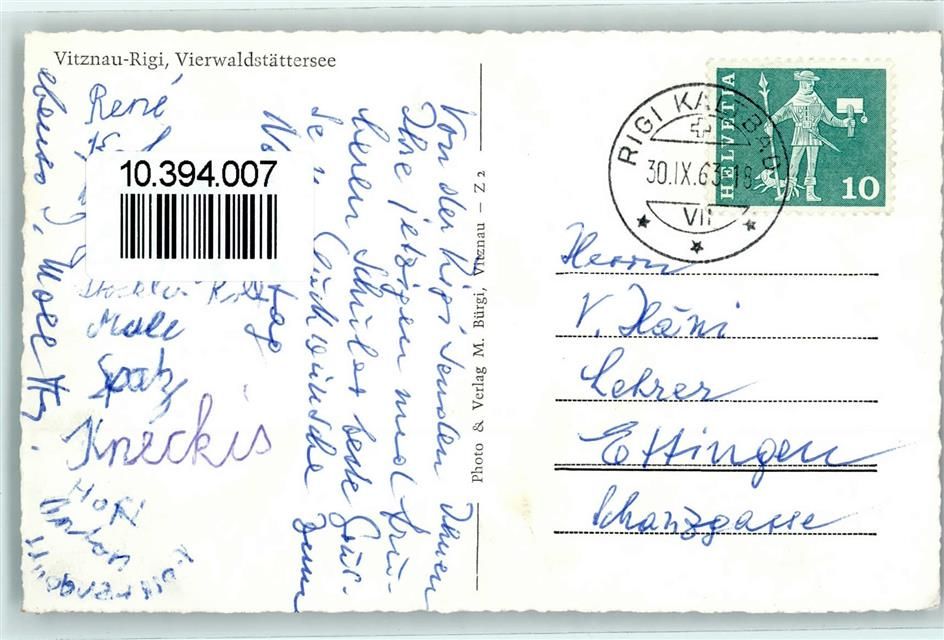 Vitznau-Rigi, Vierwaldstättersee
Von der Rigi senden Ihnen
Ihre jetzigen und frü-
heren Schüler beste Grü-
sse u. Glückwünsche zum
tag
René
Male
Spatz
Kneckis
Hofi
Anton
ebenso J. Moll
10.394.007
Photo & Verlag M. Bürgi, Vitznau – Z 2
RIGI KALTBAD
30.IX.63-18
VII
HELVETIA
10
Herrn
V. Häni
Lehrer
Ettingen
Schanzgasse